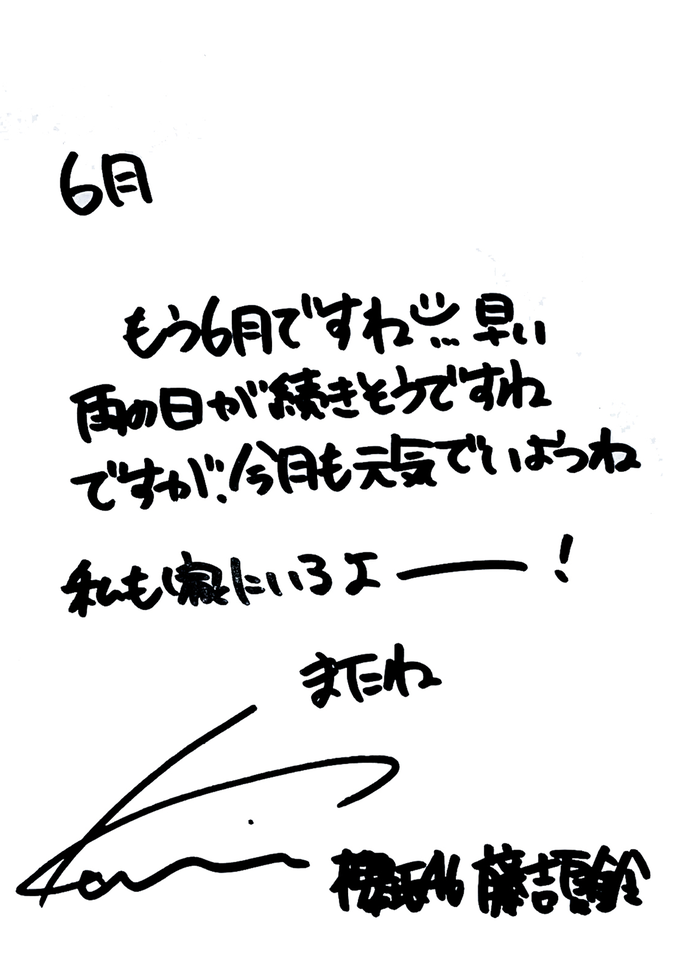 6月
もう6月ですね 早い
雨の日が続きそうですね
ですが、今月も元気でいようね
私も にいるよー!
またね
Karin
櫻坂46 藤吉夏鈴